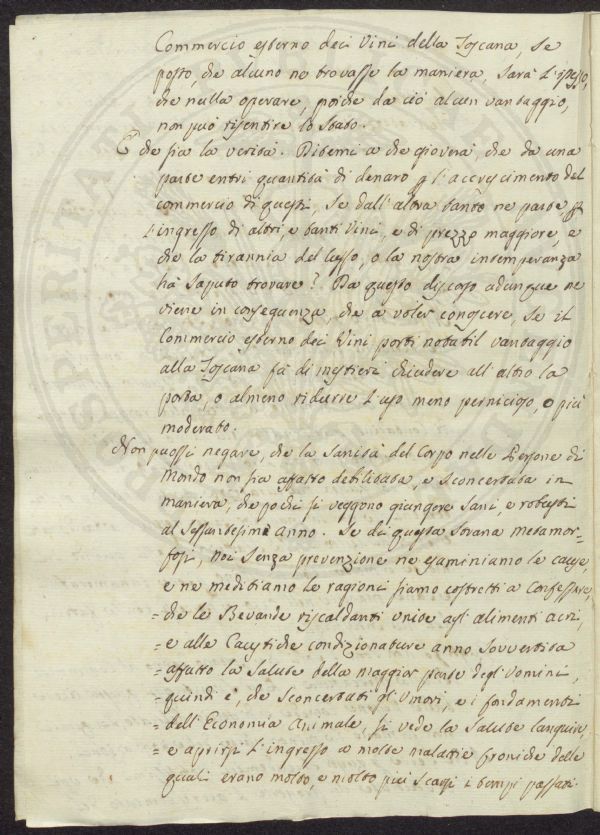 Commercio esterno dei Vini della Toscana, se
posto, che alcuno ne trovasse la maniera sarà l'istesso,
che nulla operare, poiche da ciò alcun vantaggio,
non può risentire lo stato.
E che sia la verità. Ditemi a che gioverà, che da una
parte entri quantità di denaro p l'accrescimento del
commercio di questi, se dall'altra tanto ne parte, p
l'ingresso di altri, e tanti Vini, e di prezzo maggiore, e
che la tirannia del lusso, o la nostra intemperanza
hà saputo trovare? Da questo discorso adunque ne
viene in conseguenza, che a voler conoscere, se il
Commercio esterno dei Vini porti notabil vantaggio
alla Toscana fà di mestieri chiudere all'altro la
porta, o almeno ridurre l'uso meno pernicioso, o più
moderato.
Non puossi negare, che la sanità del Corpo nelle Persone di
Mondo non sia affatto debilitata, e sconcertata in
maniera, che pochi si veggono giungere sani, e robusti
al sessantesimo anno. Se di questa strana metamor=
fosi, noi senza prevenzione ne esaminiamo le cause,
e ne meditiamo le ragioni siamo costretti a Confessare,
= che le Bevande riscaldanti unite agl'alimenti acri,
= e alle Caustiche condizionature anno sovvertita
= affatto la salute della maggior parte degl'Uomini,
= quindi è, che sconcertati gl'Umori, e i fondamenti
= dell'Economia Animale, si vede la salute languire,
= e aprirsi l'ingresso a molte malattie croniche delle
quali erano molto, e molto più scarsi i tempi passati.